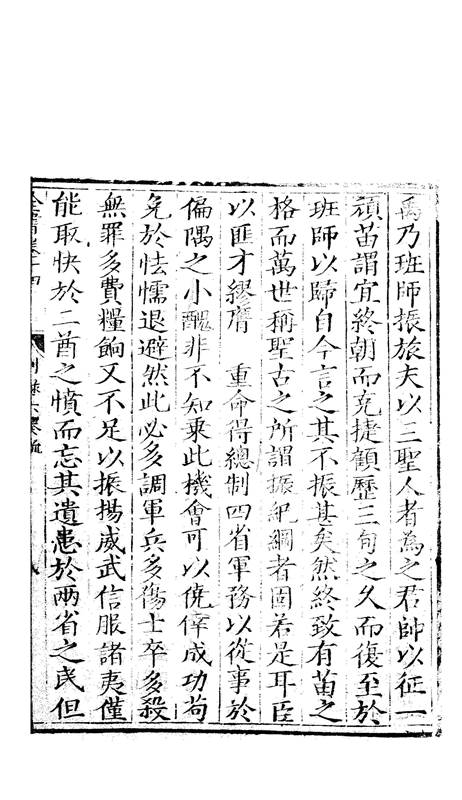 禹乃班師振旅夫以三聖人者為之君帥以征一
頑苗謂宜終朝而克捷顧歷三旬之久而復至於
班師以歸自今言之其不振甚矣然終致有苗之
格而萬世稱聖古之所謂振紀綱者固若是耳臣
以匪才繆膺　重命得總制四省軍務以從事於
偏隅之小醜非不知乘此機會可以僥倖成功苟
免於怯懦退避然此必多調軍兵多傷士卒多殺
無罪多費糧餉又不足以振揚威武信服諸夷僅
能取快於二酋之憤而忘其遺患於兩省之民但